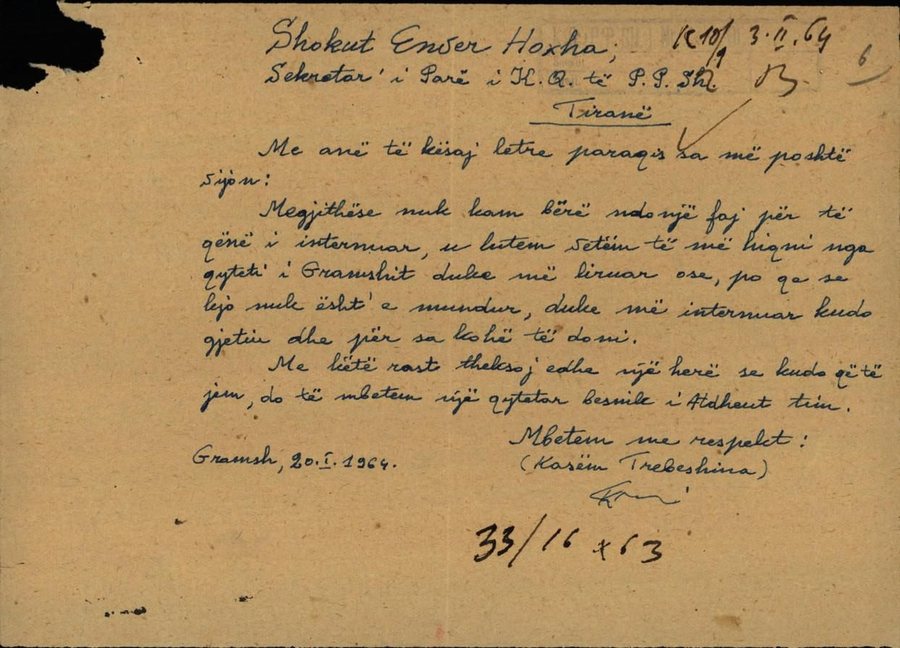 Shokut Enver Hoxha, K10/1 3.II.64 6
Sekretar' i Parë i K.Q. të P.P.Sh.
Tiranë
Me anë të kësaj letre paraqis sa më poshtë
vijon:
Megjithëse nuk kam bërë ndonjë faj për të
qënë i internuar, u lutem vetëm të më hiqni nga
qyteti i Gramshit duke më liruar ose, po qe se
kjo nuk ësht' e mundur, duke më internuar kudo
gjetiu dhe për sa kohë të doni.
Me këtë rast theksoj edhe një herë se kudo që të
jem, do të mbetem një qytetar besnik i Atdheut tim.
Mbetem me respekt:
Gramsh, 20.I.1964. (Kasëm Trebeshina)
33/16 x 63